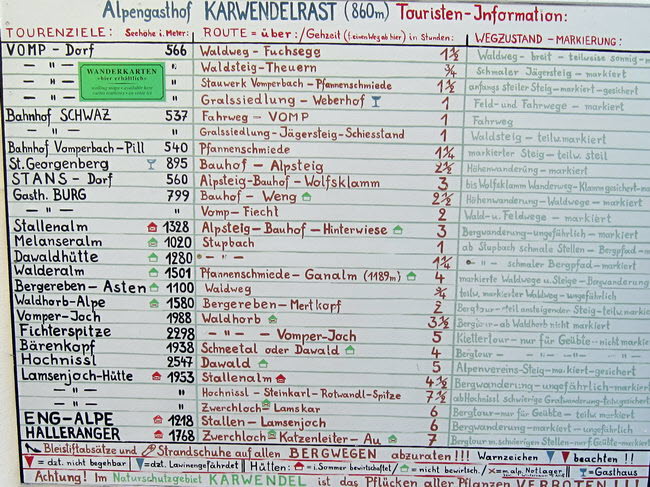 Alpengasthof KARWENDELRAST (860m) Touristen-Information:
TOURENZIELE: Seehöhe i. Meter: ROUTE = über: / Gehzeit (f. einen Weg ab hier) in Stunden: WEGZUSTAND - MARKIERUNG:
VOMP - Dorf 566 Waldweg - Fuchsegg 1½ Waldweg - breit - teilweise sonnig
— " — " — Waldsteig - Theuern ¾ Schmaler Jägersteig - markiert
WANDERKARTEN
• hier erhältlich •
Stauwerk Vomperbach - Pfannenschmiede 1½ anfangs steiler Steig - markiert - gesichert
Gralssiedlung - Weberhof 1 Feld- und Fahrwege - markiert
Bahnhof SCHWAZ 537 Fahrweg - VOMP 1 Fahrweg
— " — " — Gralssiedlung - Jägersteig - Schiesstand 1 Waldsteig - teilw. markiert
Bahnhof Vomperbach - Pill 540 Pfannenschmiede 1¼ markierter Steig - teilw. steil
St. Georgenberg 895 Bauhof - Alpsteig 2½ Höhenwanderung - markiert
STANS - Dorf 560 Alpsteig - Bauhof - Wolfsklamm 3 bis Wolfsklamm Wanderweg - Klamm gesichert
Gasth. BURG 799 Bauhof - Weng 2½ Höhenwanderung - Waldwege - markiert
— " — " — Vomp - Fiecht 2 Wald - u. Feldwege - markiert
Stallenalm 1328 Alpsteig - Bauhof - Hinterwiese 3 Bergwanderung - ungefährlich - markiert
Melanseralm 1020 Stupbach 1 ab Stupbach schmale Stellen - Bergpfad
Dawaldhütte 1280 — " — 1¼ — " — schmaler Bergpfad - markiert
Walderalm 1501 Pfannenschmiede - Ganalm (1189m) 4 markierte Waldwege u. Steige - Bergwanderung
Bergereben - Asten 1100 Waldweg ¾ teilw. markierter Waldweg - ungefährlich
Waldhorb - Alpe 1580 Bergereben - Mertkopf 2 Bergtour - teils ansteigender Steig - teilw.
Vomper - Joch 1988 Waldhorb 3½ Bergtour - ab Waldhorb nicht markiert
Fichterspitze 2298 — " — " — Vomper - Joch 5 Klettertour - nur für Geübte - nicht
Bärenkopf 1938 Schneetal oder Dawald 4 Bergtour — " — " — " —
Hochnissl 2547 Dawald 5 Alpenvereins - Steig - markiert - gesichert
Lamsenjoch - Hütte 1953 Stallenalm 4½ Bergwanderung - ungefährlich - markiert
— " — " — Hochnissl - Steinkarl - Rotwandl - Spitze 7½ ab Hochnissl schwierige Gratwanderung - teils gesichert
— " — " — Zwerchloch Lamskar 6 Bergtour - nur für Geübte - teilw. markiert
ENG - ALPE 1218 Stallen - Lamsenjoch 6 Bergwanderung - markiert - ungefährlich
HALLERANGER 1768 Zwerchloch Katzenleiter - Au 7 Bergtour m. schwierigen Stellen - nur f. Geübte - markiert
Bleistiftabsätze und Strandschuhe auf allen BERGWEGEN abzuraten!!! Warnzeichen beachten!!
= dzt. nicht begehbar = dzt. Lawinengefährdet Hütten: = i. Sommer bewirtschaftet / = nicht bewirtsch. / X = m. alp. Notlager = Gasthaus
Achtung! Im Naturschutzgebiet KARWENDEL ist das Pflücken aller Pflanzen VERBOTEN!!!!